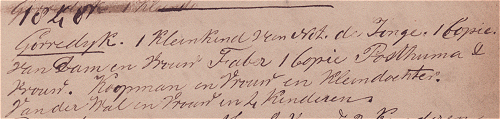 1840
Gorredyk. 1 kleinkind van Not. de Jonge. 1 Copie.
van Dam en Vrouw Faber 1 Copie Posthuma &
Vrouw. Koopman en Vrouw en Kleindochter.
Van der Wal en Vrouw en 4 Kinderen.